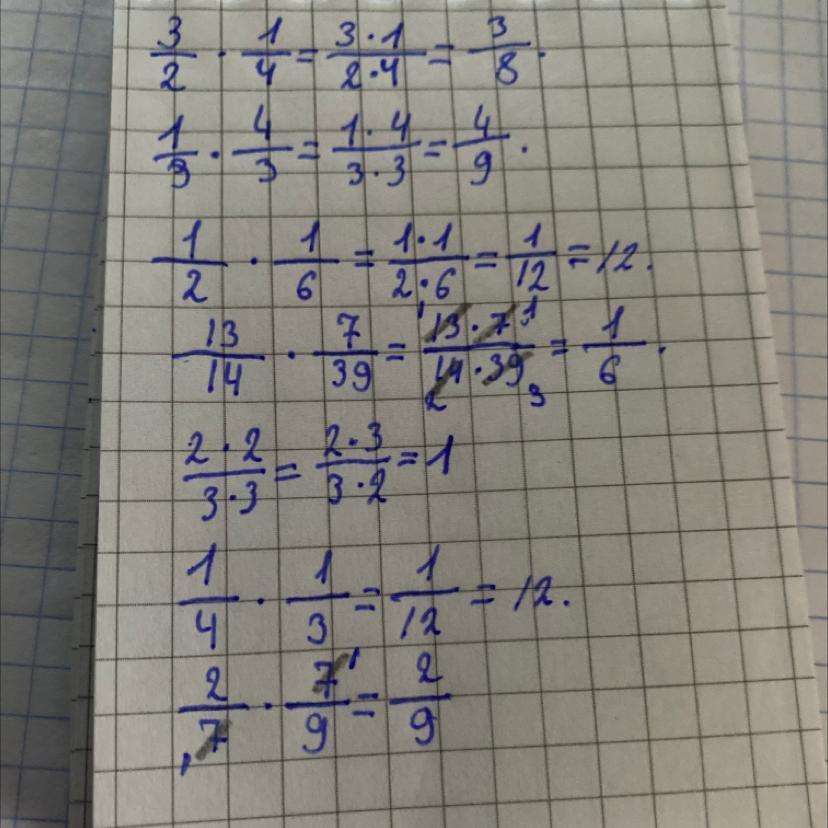 3/2 · 1/4 = 3·1/2·4 = 3/8.
1/3 · 4/3 = 1·4/3·3 = 4/9.
1/2 · 1/6 = 1·1/2·6 = 1/12 = 12.
13/14 · 7/39 = 1 13·7 1/14·39 2 3 = 1/6.
2·2/3·3 = 2·3/3·2 = 1
1/4 · 1/3 = 1/12 = 12.
2/7 1 · 7 1/9 = 2/9